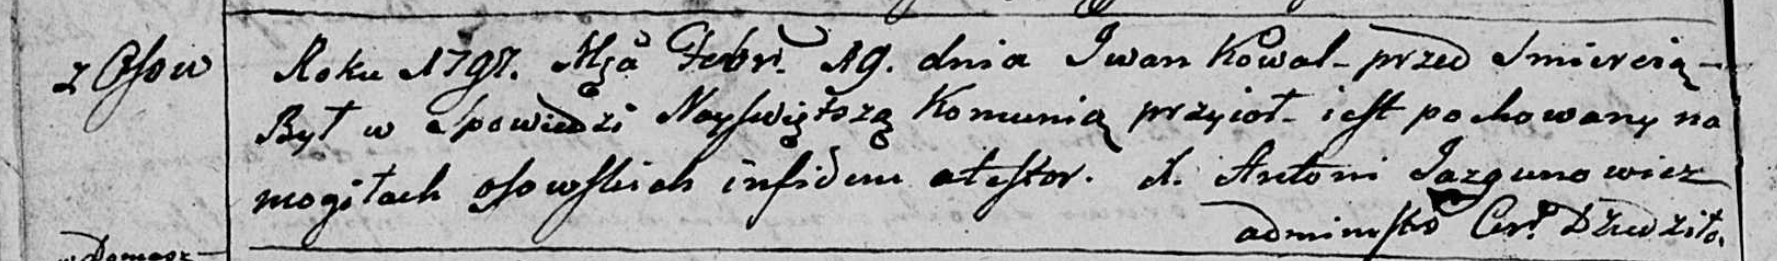 z Osow
Roku 1797. Mca Febr. 19. dnia Iwan Kowal - przed Smiercią -
Był w Spowiedzi Nayswiętszą Komunią przyioł - iest pochowany na
mogiłach osowskich in fidem atestor. X. Antoni Jazgunowicz
administr Cer. Dziedziło.